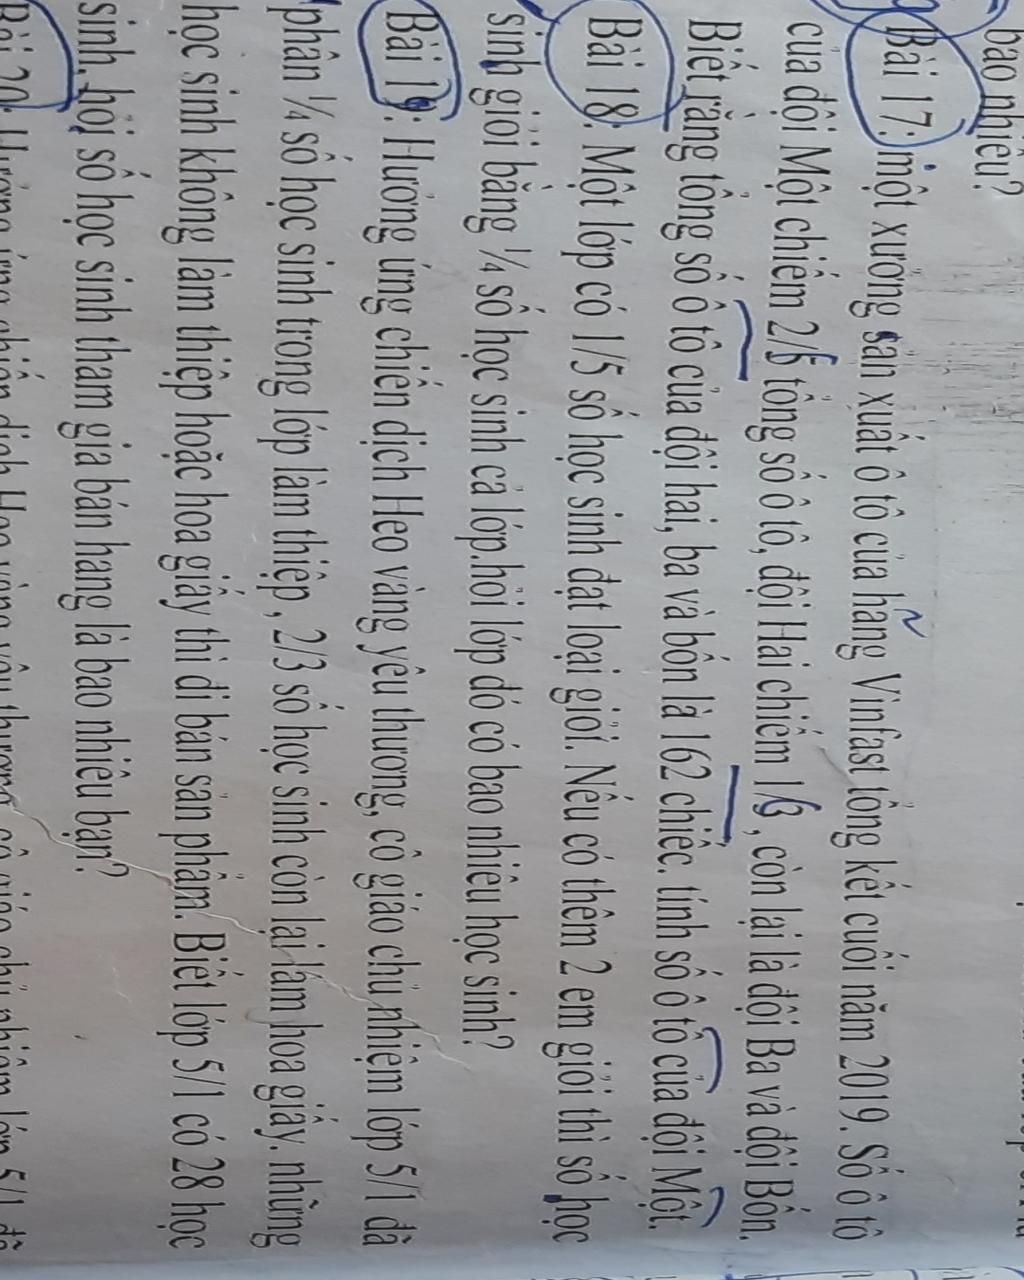 bao nhiêu?
Bài 17: một xưởng sản xuất ô tô của hãng Vinfast tổng kết cuối năm 2019. Số ô tô
của đội Một chiếm 2/5 tổng số ô tô, đội Hai chiếm 1/3 , còn lại là đội Ba và đội Bốn.
Biết rằng tổng số ô tô của đội hai, ba và bốn là 162 chiếc. tính số ô tô của đội Một.
Bài 18. Một lớp có 1/5 số học sinh đạt loại giỏi. Nếu có thêm 2 em giỏi thì số học
sinh giỏi bằng ¼ số học sinh cả lớp.hỏi lớp đó có bao nhiêu học sinh?
Bài 19: Hưởng ứng chiến dịch Heo vàng yêu thương, cô giáo chủ nhiệm lớp 5/1 đã
phân ¼ số học sinh trong lớp làm thiệp , 2/3 số học sinh còn lại làm hoa giấy. những
học sinh không làm thiệp hoặc hoa giấy thì đi bán sản phẩm. Biết lớp 5/1 có 28 học
sinh, hỏi số học sinh tham gia bán hàng là bao nhiêu bạn?
Bài 20: Hưởng ứng chiến dịch Heo vàng yêu thương, cô giáo chủ nhiệm lớp 5/1 đã